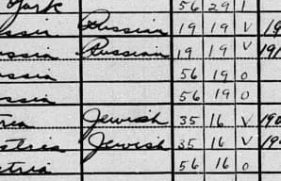 York 56 29 1
ssia Russian 19 19 V 19
ussia Russian 19 19 V 191
ussia 56 19 0
ssia 56 19 0
tria Jewish 35 16 V 190
stria Jewish 35 16 V 190
stria 56 16 0